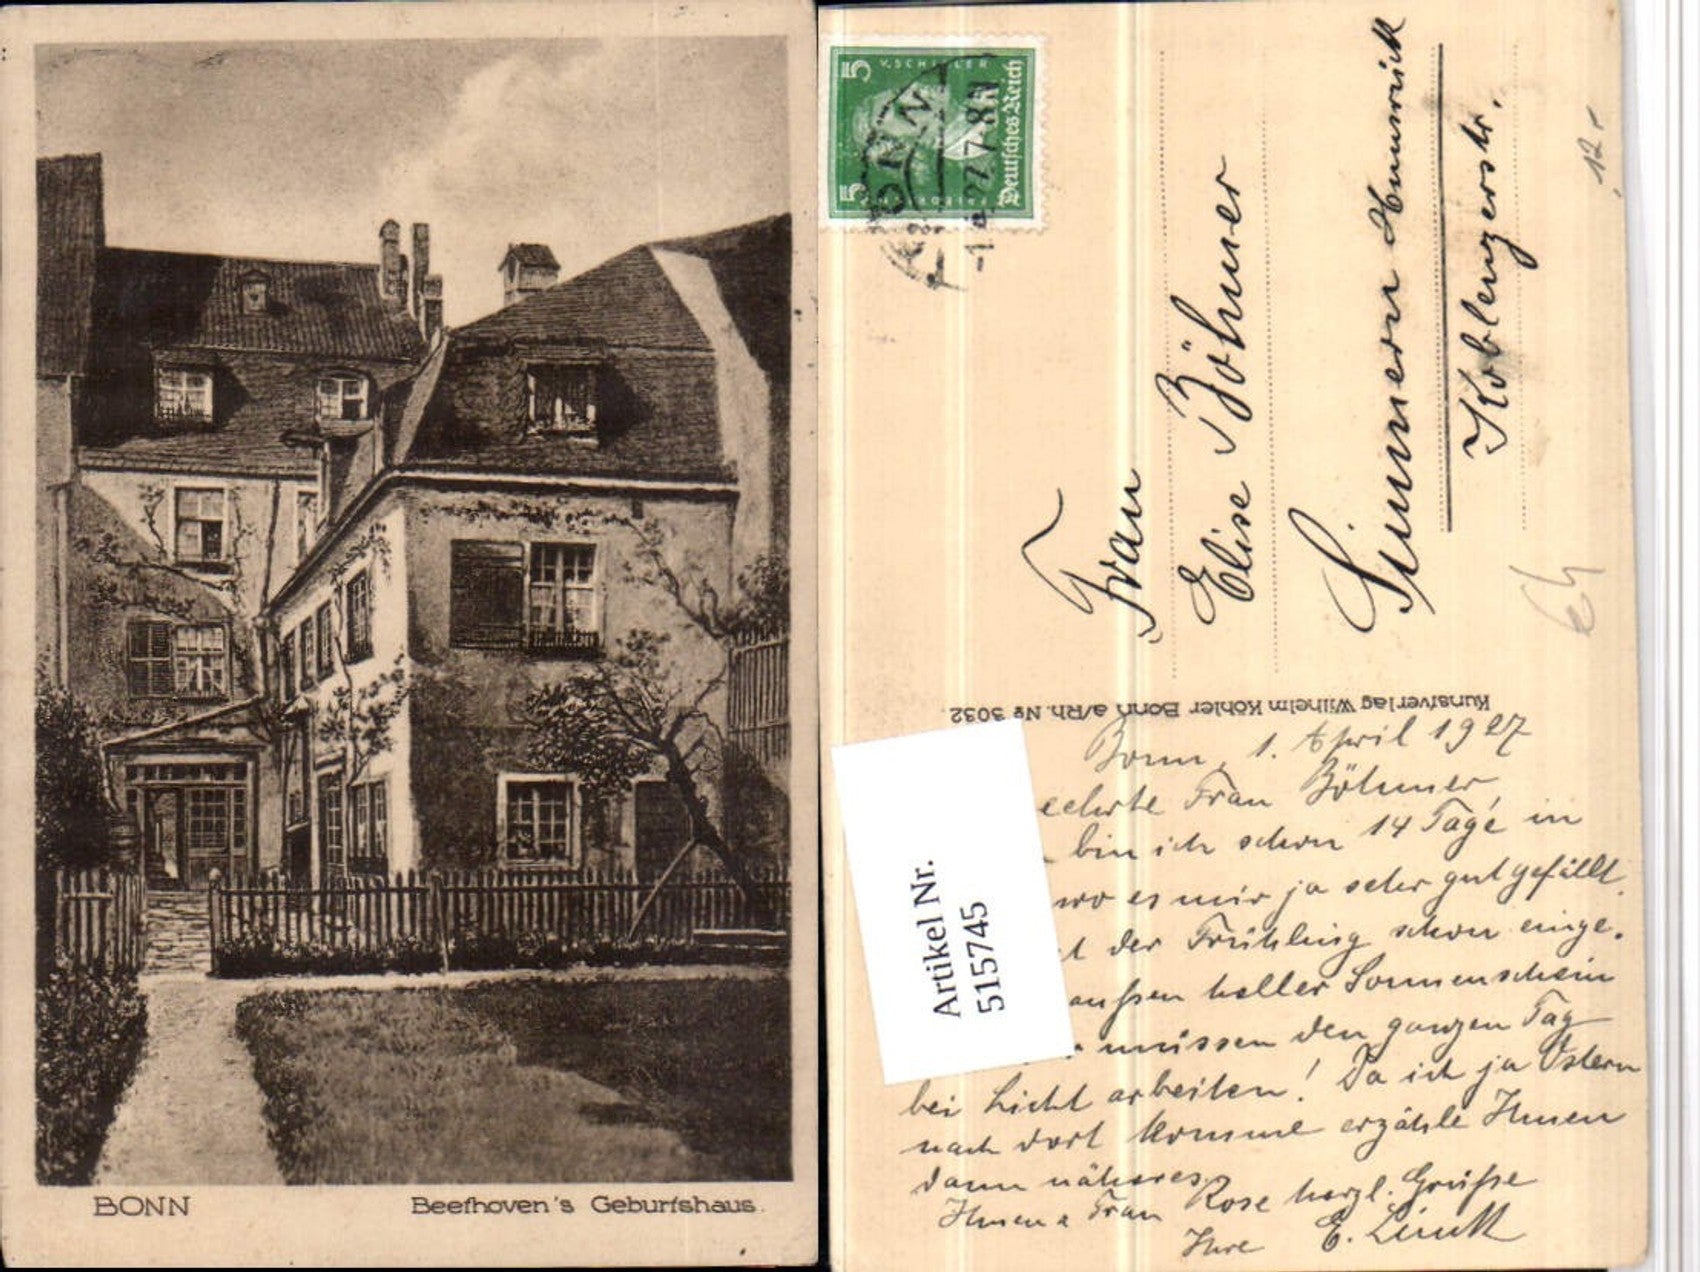 BONN
Beethoven's Geburtshaus.
5 V. SCHILLER 5
Deutsches Reich
BONN
-1.4.27.7-8N
Frau
Elise Böhmer
Simmern Hunsrück
Koblenzerstr.
12.-
Kunstverlag Wilhelm Köhler Bonn a/Rh. № 3032.
Artikel Nr.
515745
Bonn, 1. April 1927
Frau Böhmer,
bin ich schon 14 Tage in
wo es mir ja sehr gut gefällt.
der Frühling schon einge.
außen heller Sonnenschein
müssen den ganzen Tag
bei Licht arbeiten! Da ich ja Ostern
nach dort komme erzähle Ihnen
dann näheres.
Ihnen u Frau Rose herzl. Grüße
Ihre E.